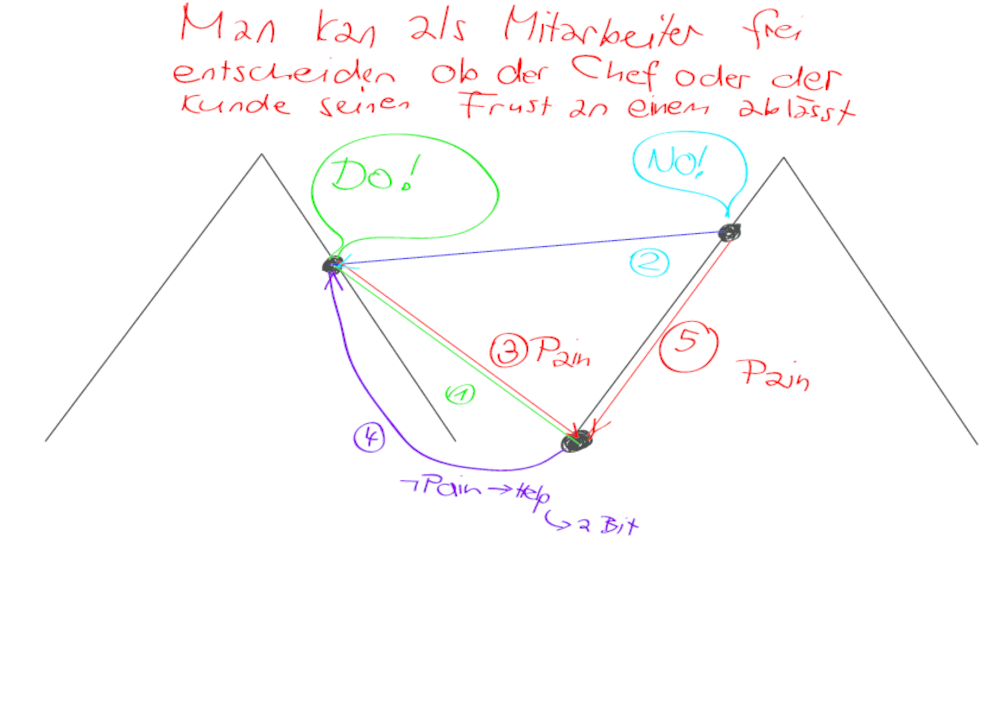 Man kan als Mitarbeiter frei
entscheiden ob der Chef oder der
Kunde seinen Frust an einem ablässt
Do!
No!
2
3 Pain
5
Pain
1
4
¬Pain → Help
↳ 2 Bit